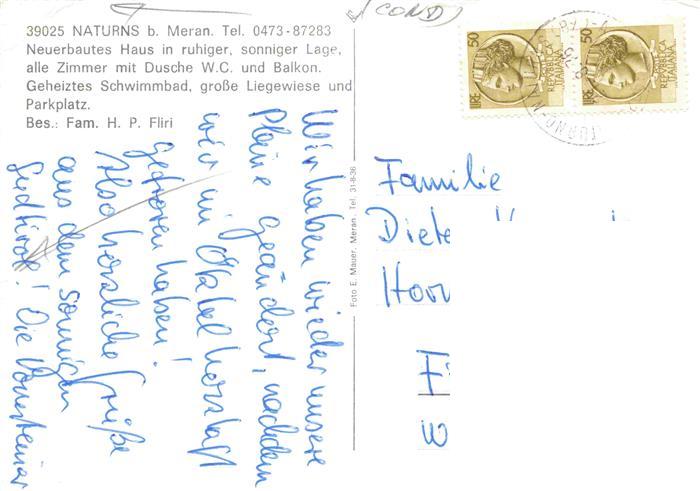 39025 NATURNS b. Meran. Tel. 0473-87283
Neuerbautes Haus in ruhiger, sonniger Lage,
alle Zimmer mit Dusche W.C. und Balkon.
Geheiztes Schwimmbad, große Liegewiese und
Parkplatz.
Bes.: Fam. H. P. Fliri
(COND)
50 LIRE REPUBBLICA ITALIANA
50 LIRE REPUBBLICA ITALIANA
Wir haben wieder unsere
Pläne geändert, nachdem
wir im Ötztal herzhaft
gefroren haben!
Also herzliche Grüße
aus dem sonnigen
Südtirol! Die
Foto E. Mauer, Meran, Tel. 31-8-36
Familie